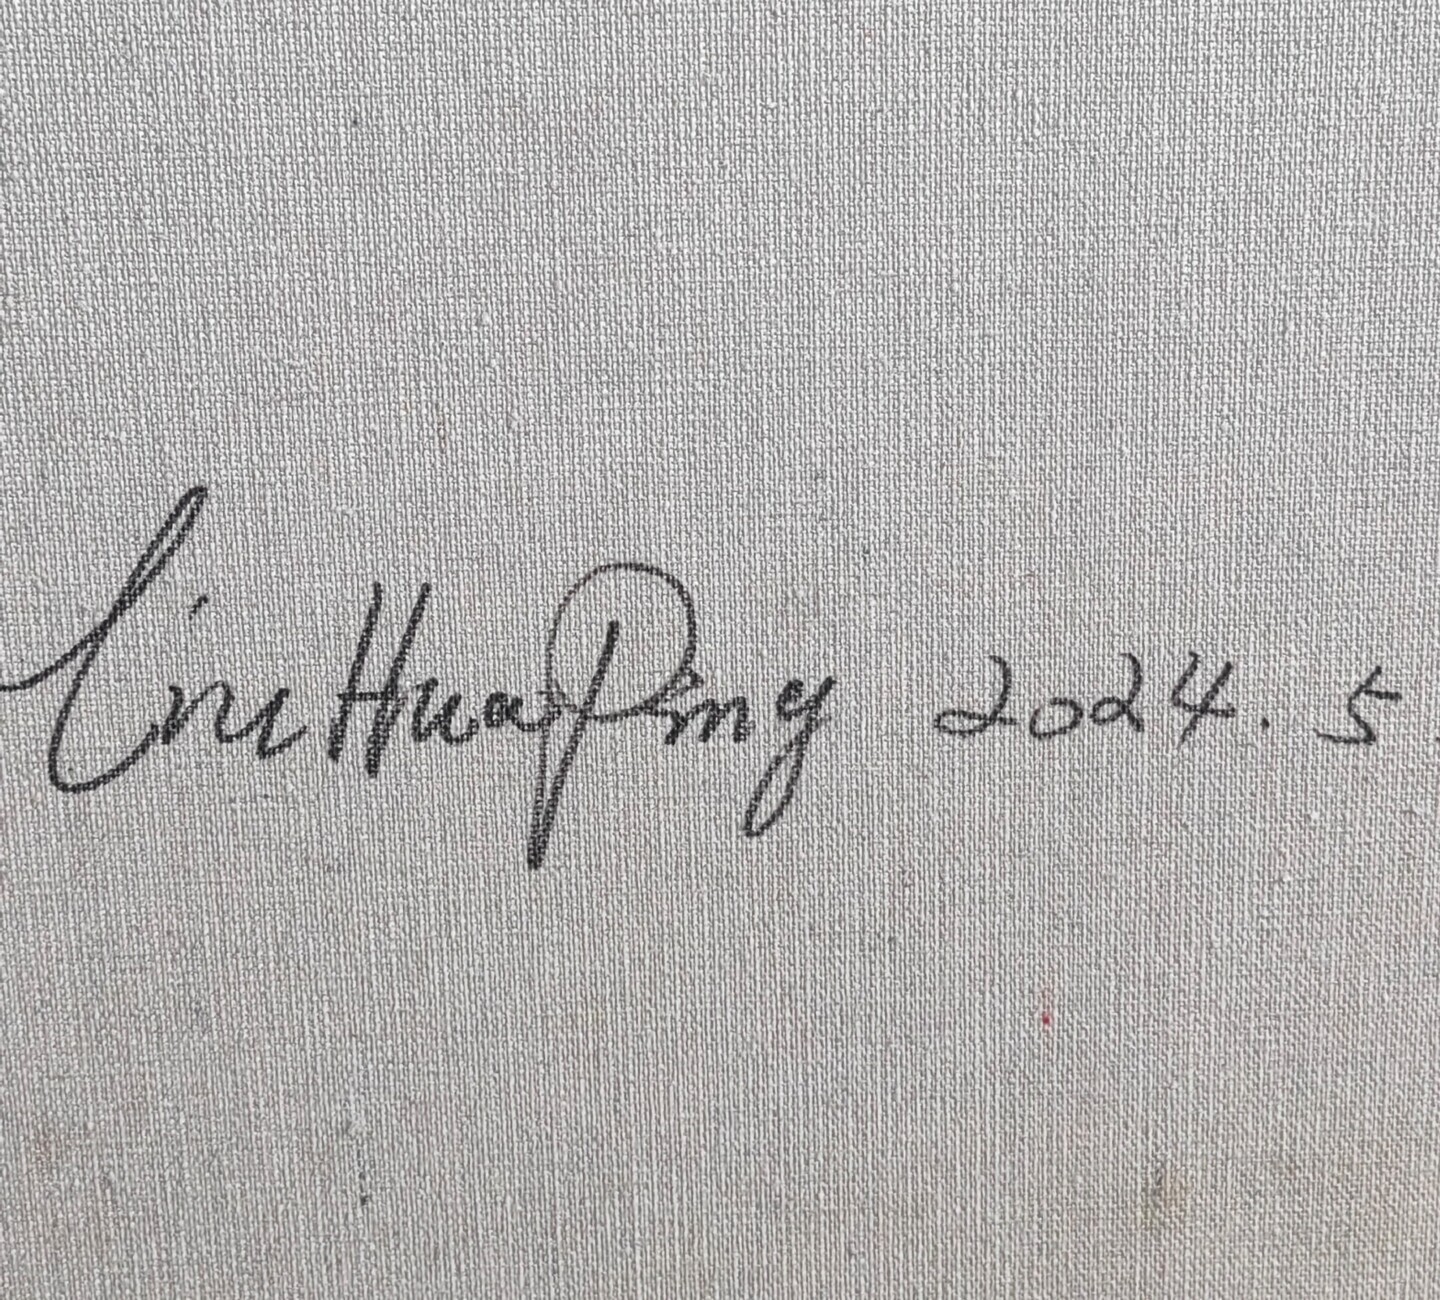 Liu HuaPing 2024.5.